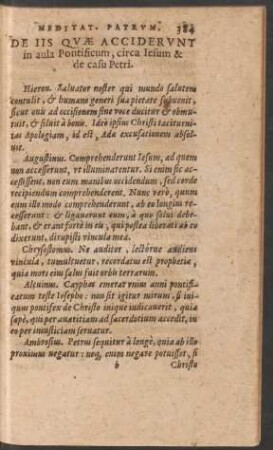 MEDITAT. PATRVM. 384
DE IIS QVÆ ACCIDERVNT
in aula Pontificum, circa Iesum &
de casu Petri.
Hieron. Saluator noster qui mundo salutem
contulit, & humano generi sua pietate subuenit,
sicut ouis ad occisionem sine voce ducitur & obmu-
tuit, & siluit à bonis. Ideò ipsius Christi taciturni-
tas Apologiam, id est, Adæ excusationem absol-
uit.
Augustinus. Comprehenderunt Iesum, ad quem
non accesserunt, vt illuminarentur. Si enim sic ac-
cessissent, non eum manibus occidendum, sed corde
recipiendum comprehenderent. Nunc verò, quum
eum illo modo comprehenderunt, ab eo longius re-
cesserunt: & ligauerunt eum, à quo solui debe-
bant, & erant fortè in eis, qui postea liberati ab eo
dixerunt, dirupisti vincula mea.
Chrysostomus. Ne auditor, lectórue audiens
vincula, tumultuetur, recordatus est prophetiæ,
quia mors eius salus fuit orbis terrarum.
Alcuinus. Cayphas emerat vnius anni pontifi-
catum teste Iosepho: non sit igitur mirum, si ini-
quus pontifex de Christo iniquè iudicauerit, quia
sæpè, qui per auaritiam ad sacerdotium accedit, in
eo per iniusticiam seruatur.
Ambrosius. Petrus sequitur à longè, quia ab illo
proximus negatur: neq; enim negare potuisset, si
b Christo